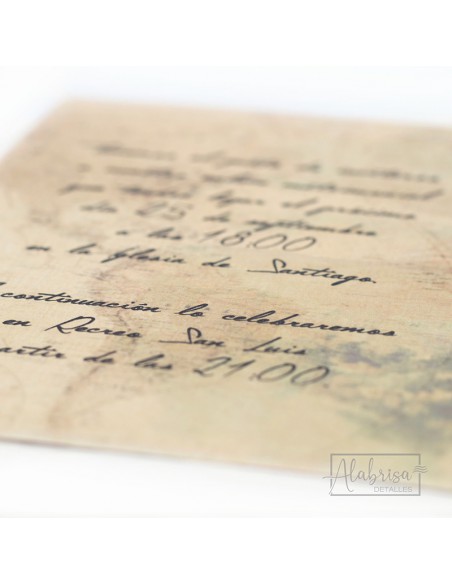 que tendrá lugar el próximo
día 25 de septiembre
a las 18:00
en la Iglesia de Santiago.
continuación lo celebraremos
en Recreo San Luis
partir de las 21:00
Alabrisa
DETALLES